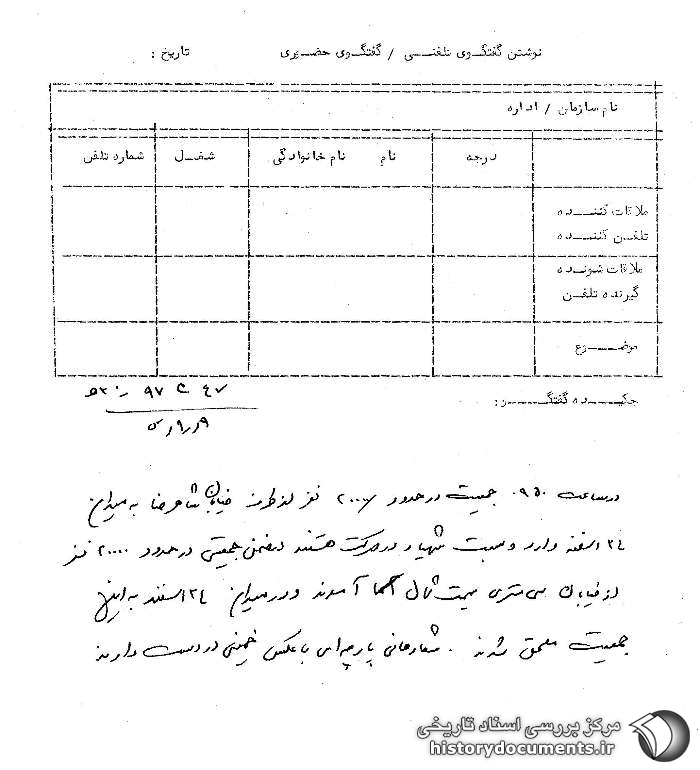 نوشتن گفتگوی تلفنی / گفتگوی حضوری تاریخ :
نام سازمان / اداره
درجه نام نام خانوادگی شغل شماره تلفن
ملاقات کننده
تلفن کننده
ملاقات شونده
گیرنده تلفن
موضوع
چکیده گفتگو:
در ساعت ۰۹۵۰ جمعیت در حدود ۲۰۰۰ نفر از طرف خیابان شاهرضا به میدان
۲۴ اسفند وارد و بسمت شهیاد در حرکت هستند درضمن جمعیتی در حدود ۲۰۰۰۰ نفر
از خیابان سی متری سمت شمال آمدند و در میدان ۲۴ اسفند به این
جمعیت ملحق شدند . شعارهائی پارچه‌ای با عکس خمینی در دست دارند
مرکز بررسی اسناد تاریخی
historydocuments.ir